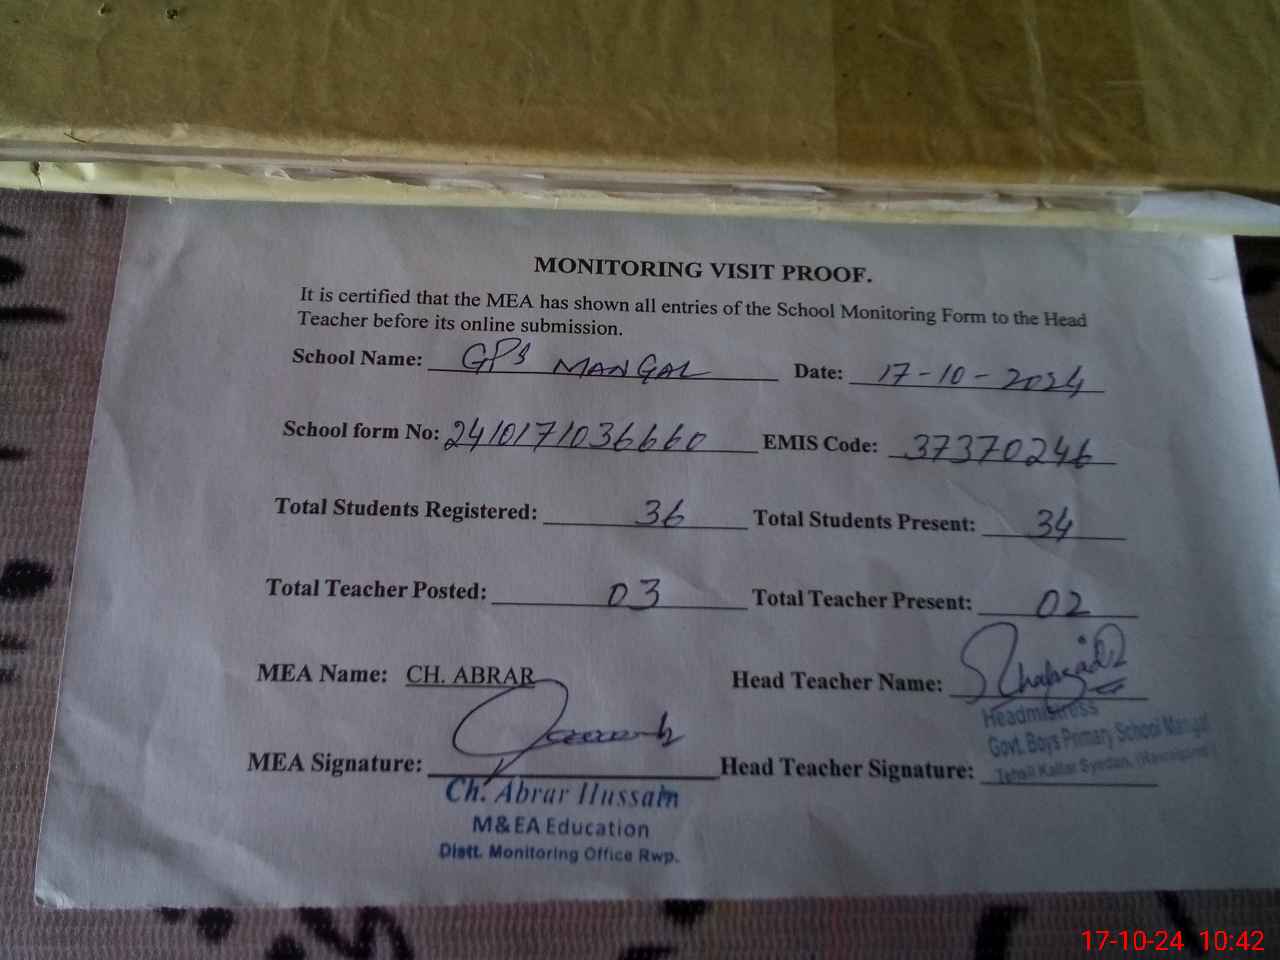 MONITORING VISIT PROOF.
It is certified that the MEA has shown all entries of the School Monitoring Form to the Head
Teacher before its online submission.
School Name: GPS MANGAL Date: 17-10-2024
School form No: 2410171036660 EMIS Code: 37370246
Total Students Registered: 36 Total Students Present: 34
Total Teacher Posted: 03 Total Teacher Present: 02
MEA Name: CH. ABRAR Head Teacher Name:
Headmistress
Govt. Boys Primary School Mangal
Tehsil Kallar Syedan, (Rawalpindi)
MEA Signature: Head Teacher Signature:
Ch. Abrar Hussain
M&EA Education
Distt. Monitoring Office Rwp.
17-10-24 10:42